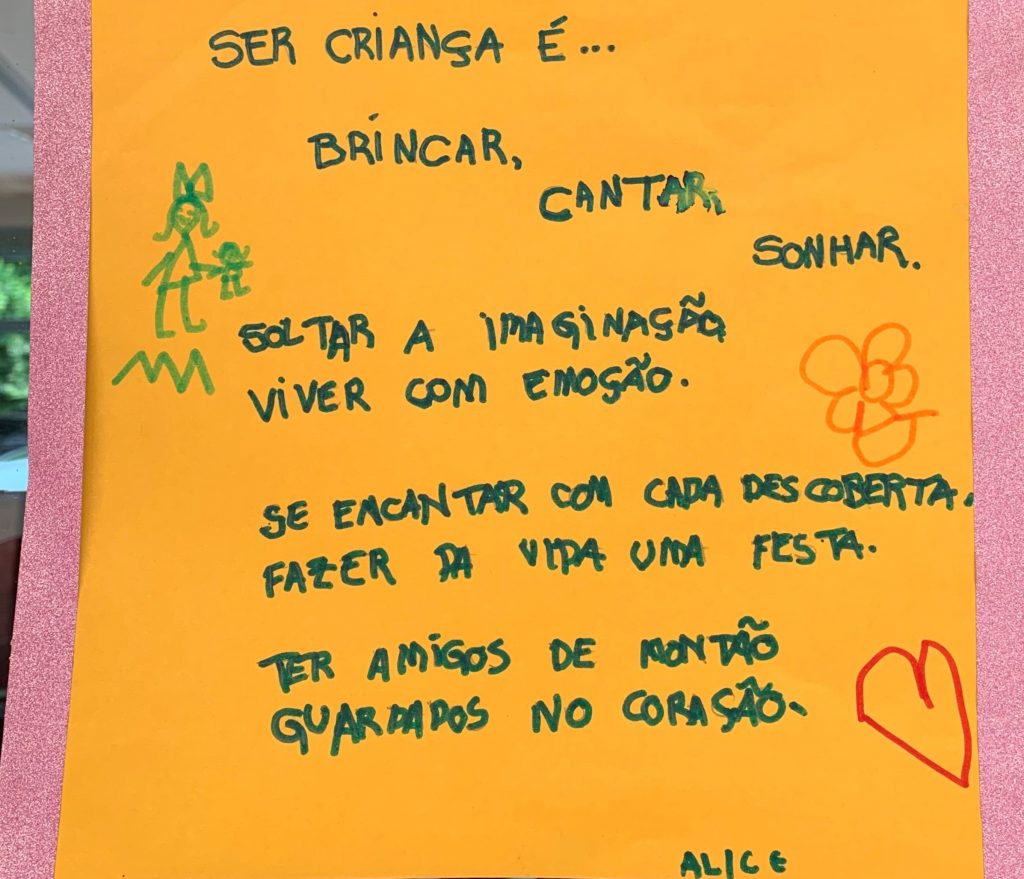 SER CRIANÇA É...
BRINCAR,
CANTAR,
SONHAR.
SOLTAR A IMAGINAÇÃO,
VIVER COM EMOÇÃO.
SE ENCANTAR COM CADA DESCOBERTA.
FAZER DA VIDA UMA FESTA.
TER AMIGOS DE MONTÃO
GUARDADOS NO CORAÇÃO.
ALICE